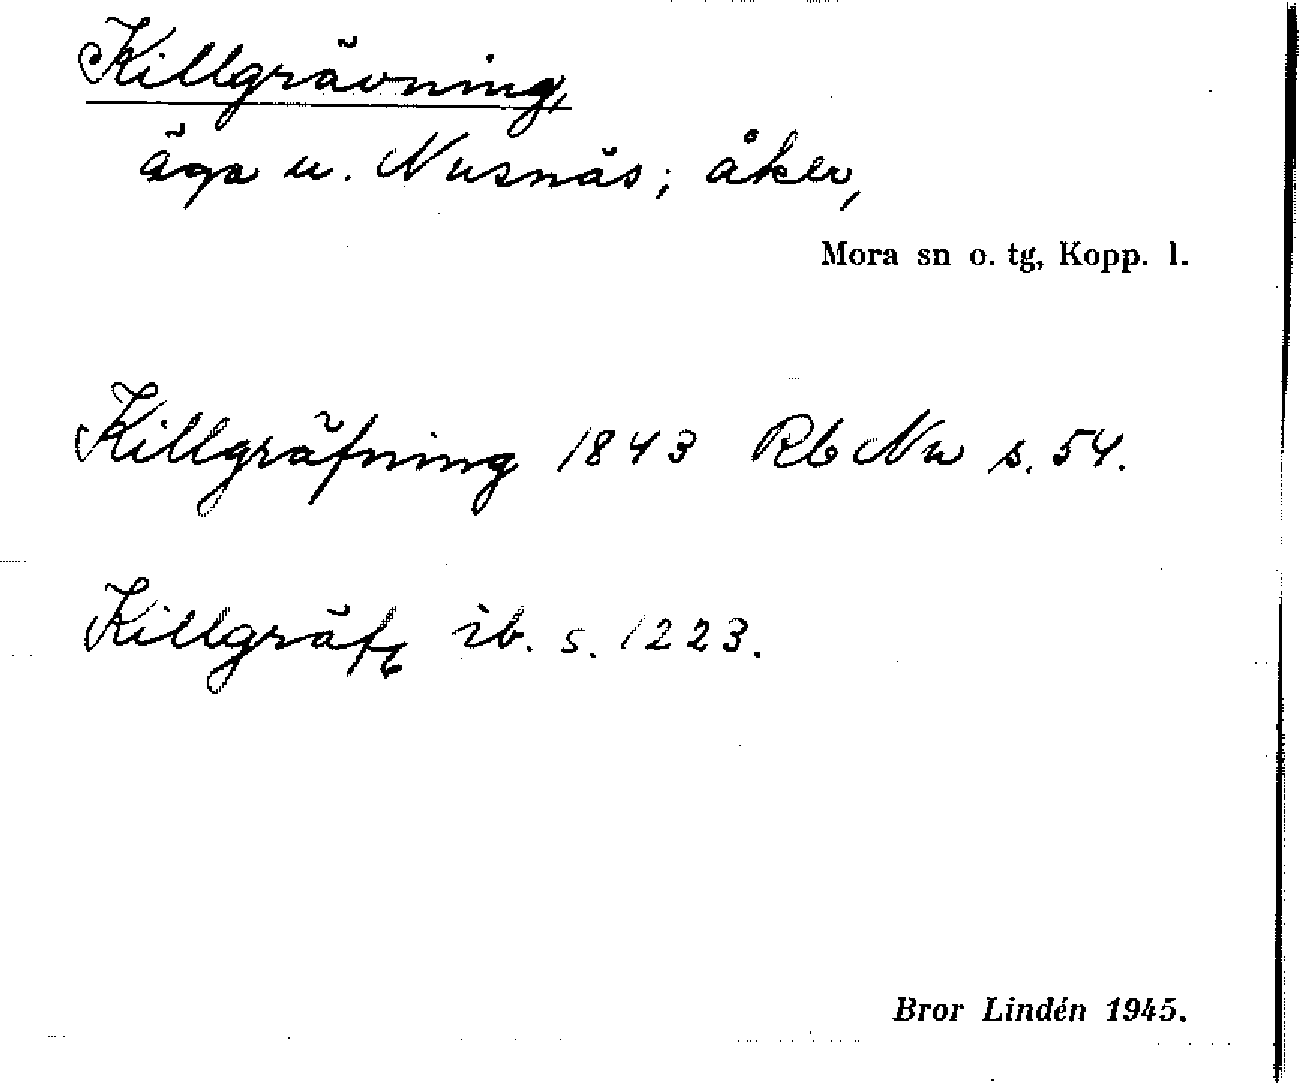 Killgrävning,
äga u. Nusnäs; åker,
Mora sn o. tg, Kopp. l.
Killgräfning 1843 Rb Nu s. 54.
Killgräf ib. s. 1223.
Bror Lindén 1945.